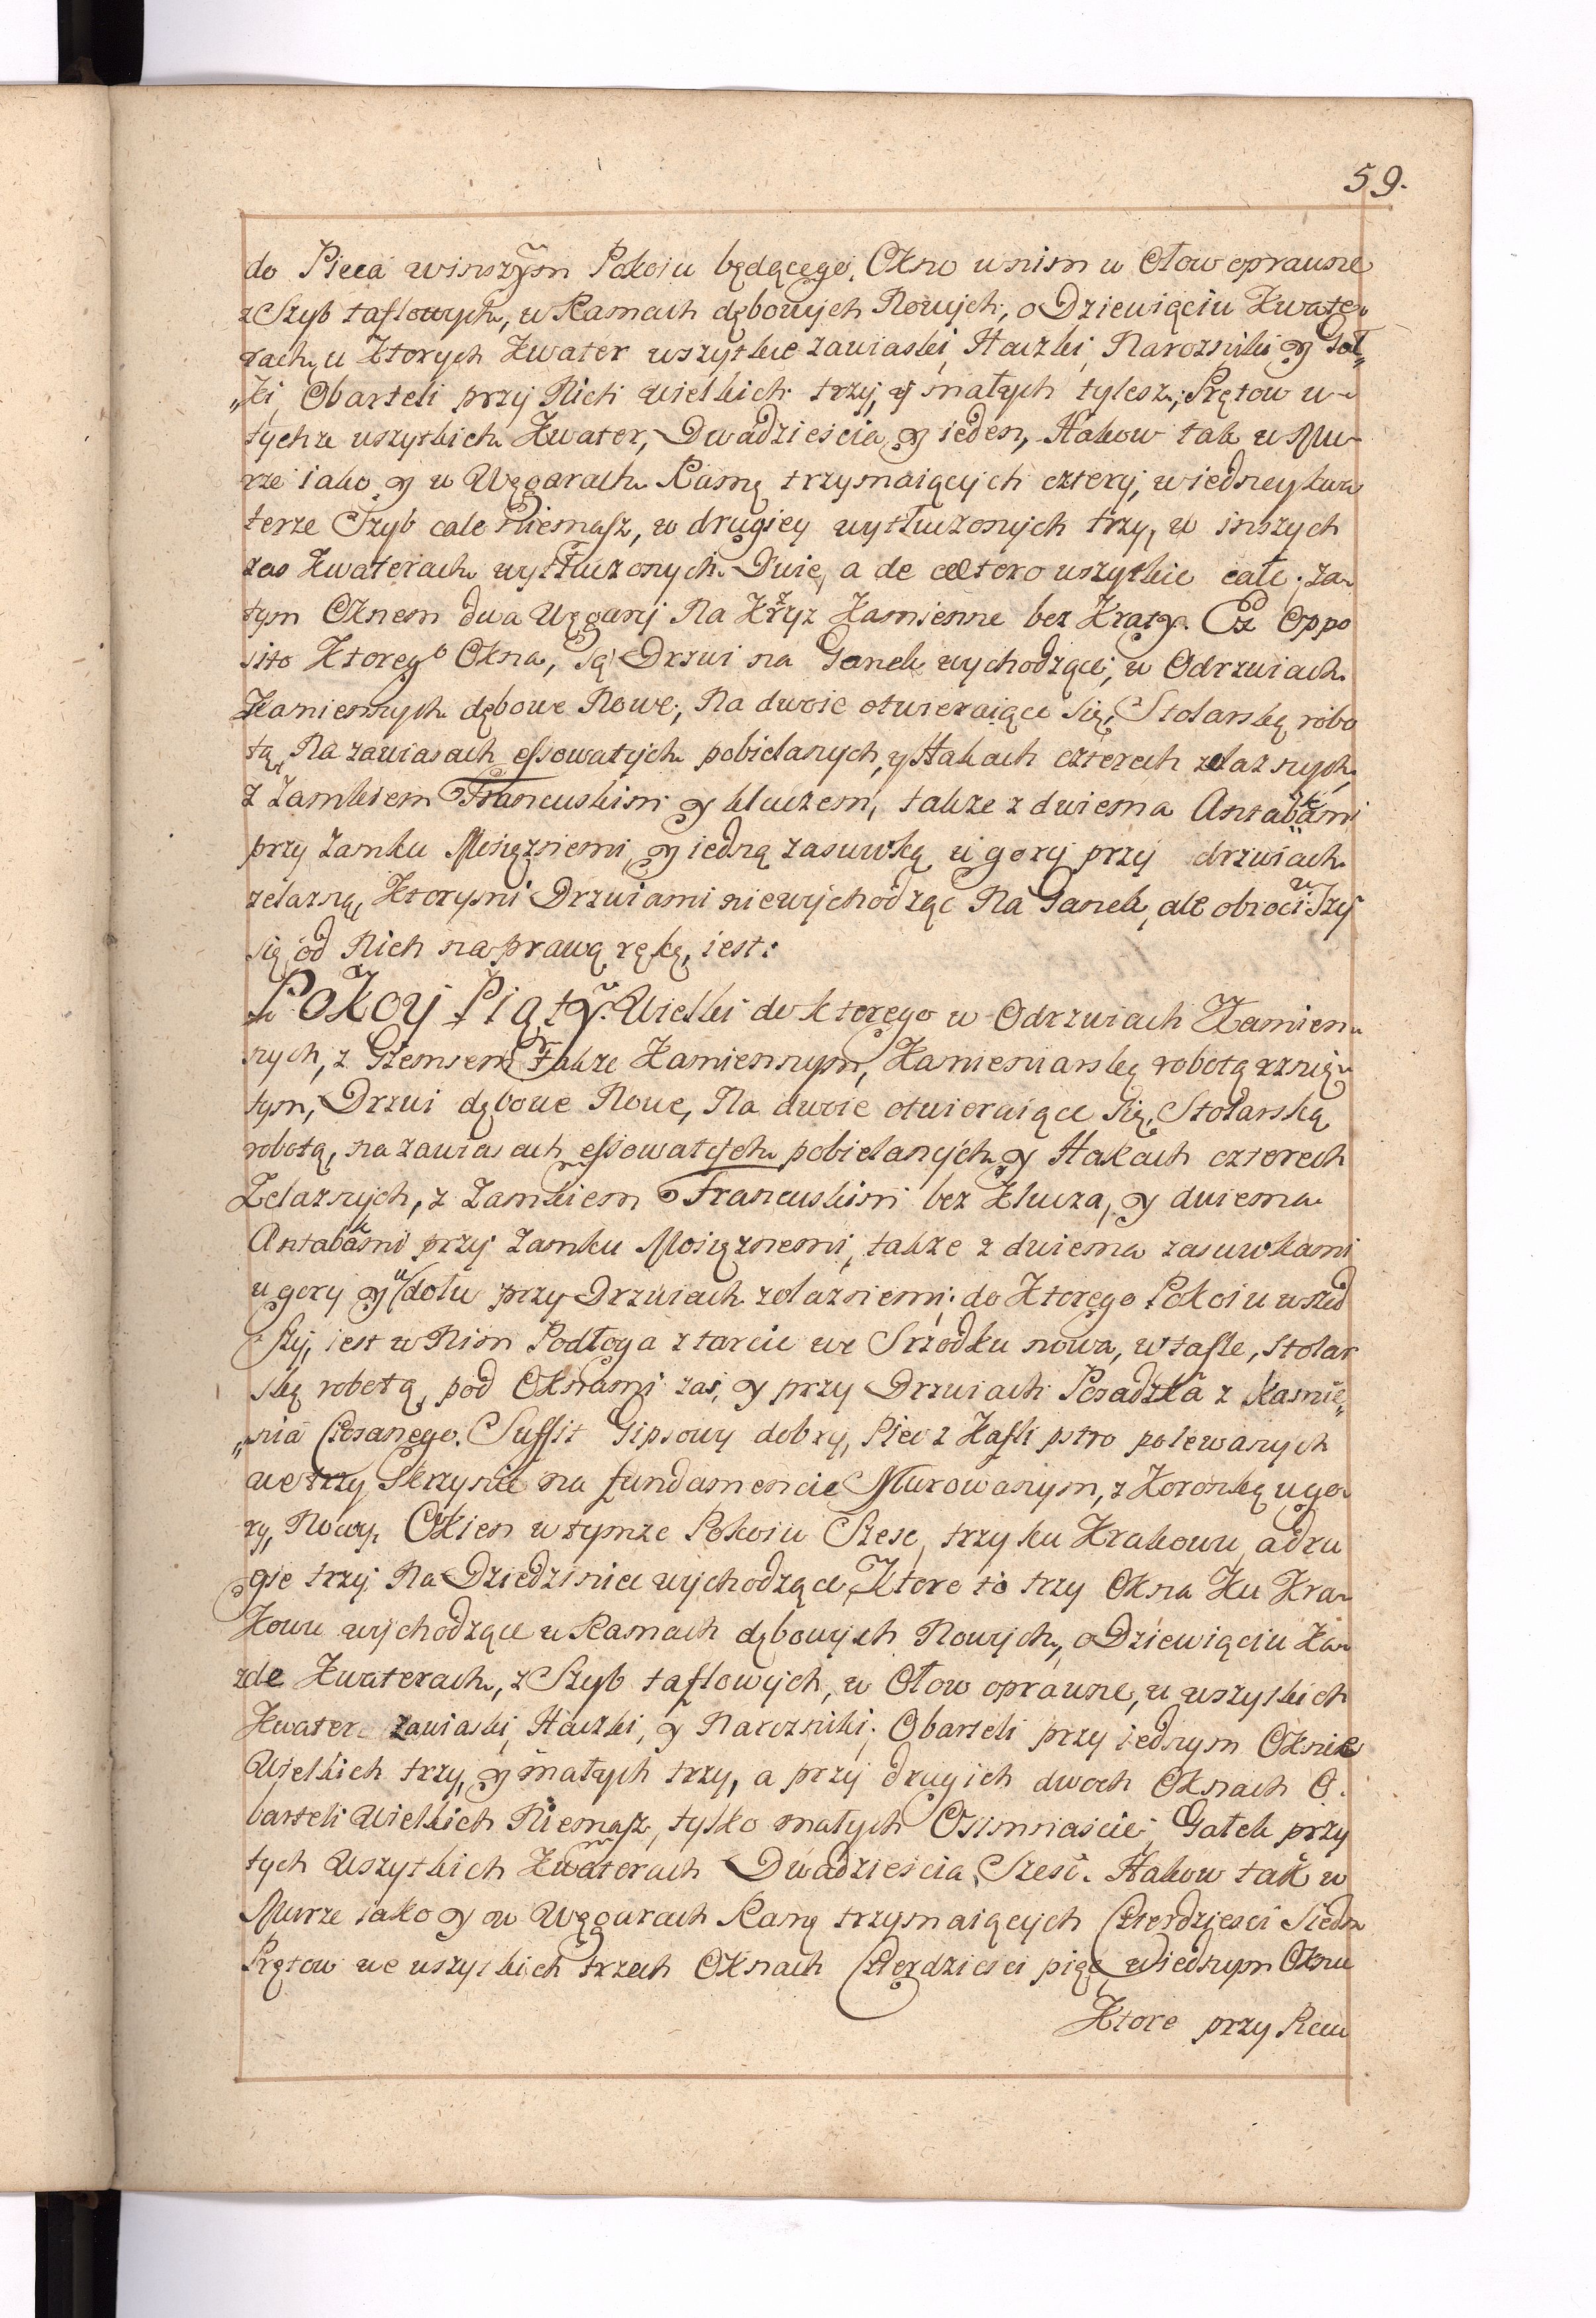 59.
do Pieca winszym Pokoiu będącego, Okno w nim w Ołow oprawne
z Szyb taflowych, w Ramach dębowych Nowych, o Dziewięciu Kwate-
rach, u Ktorych Kwater wszytkie zawiaski, Haczki, Narozniki y Gał„
„ki, Obarteli przy Nich wielkich trzy, y małych tylesz, Prętow u
tychze wszytkich Kwater, Dwadziescia y ieden, Hakow tak w Mu-
rze iako y w Węgarach Ramę trzymaiących cztery, w iedney kwa
terze Szyb cale Niemasz, w drugiey wytłuczonych trzy, w inszych
zas Kwaterach wytłuczonych Dwie, a de caetero wszytkie całe. Za
tym Oknem dwa Węgary Na Krzyz Kamienne bez Kraty. Ex Oppo
sito Ktorego Okna, są Drzwi na Ganek wychodzące, w Odrzwiach
Kamiennych dębowe Nowe, Na dwie otwieraiące się, Stolarską robo
tą, Na zawiasach essowatych pobielanych, y Hakach czterech zelaznych
z Zamkiem Francuskim y kluczem, takze z dwiema Antabkami
przy zamku Mosięzniemi, y iedną zasuwką u gory przy drzwiach
zelazną, Ktorymi Drzwiami niewychodząc Na Ganek, ale obrociwszy
się od Nich na prawą rękę, iest:
Pokoy Piąty Wielki do ktorego w Odrzwiach Kamien-
nych, z Gzemsem takze Kamiennym, Kamieniarską robotą rznię-
tym, Drzwi dębowe Nowe, Na dwie otwieraiące się, Stolarską
robotą, na zawiasach essowatych pobielanych y Hakach czterech
Zelaznych, z Zamkiem Francuskim bez Klucza, y dwiema
Antabkami przy zamku Mosięznemi, takze z dwiema zasuwkami
u gory y u dołu przy Drzwiach zelazniemi: do Ktorego Pokoiu wszed
szy, iest w Nim Podłoga z tarcic we Srzodku nowa, w tafle, stolar
ską robotą, pod Oknami zas, y przy Drzwiach Posadzka z Kamie„
„nia Ciosanego. Suffit Gipsowy dobry, Piec z Kafli pstro polewanych
we trzy Skrzynie na fundamencie Murowanym, z Koronką u go-
ry, Nowy. Okien w tymze Pokoiu Szesc, trzy ku Krakowu, a dru
gie trzy Na Dziedziniec wychodzące, Ktore to trzy Okna Ku Kra-
Kowu wychodzące w Ramach dębowych Nowych, o Dziewięciu Ka-
zde Kwaterach, z Szyb taflowych, w Ołow oprawne, u wszytkich
Kwater zawiaski, Haczki, y Narozniki, Obarteli przy iednym Oknie
Wielkich trzy, y małych trzy, a przy drugich dwoch Oknach O.
barteli Wielkich Niemasz, tylko małych Osimnascie, Gałek przy
tych Wszytkich Kwaterach Dwadziescia Szesc. Hakow tak w
Murze iako y w Węgarach Ramę trzymaiących Czterdziesci Siedm
Prętow we wszytkich trzech Oknach Czterdziesci pięc, w iednym Oknu
Ktore przy Piecu